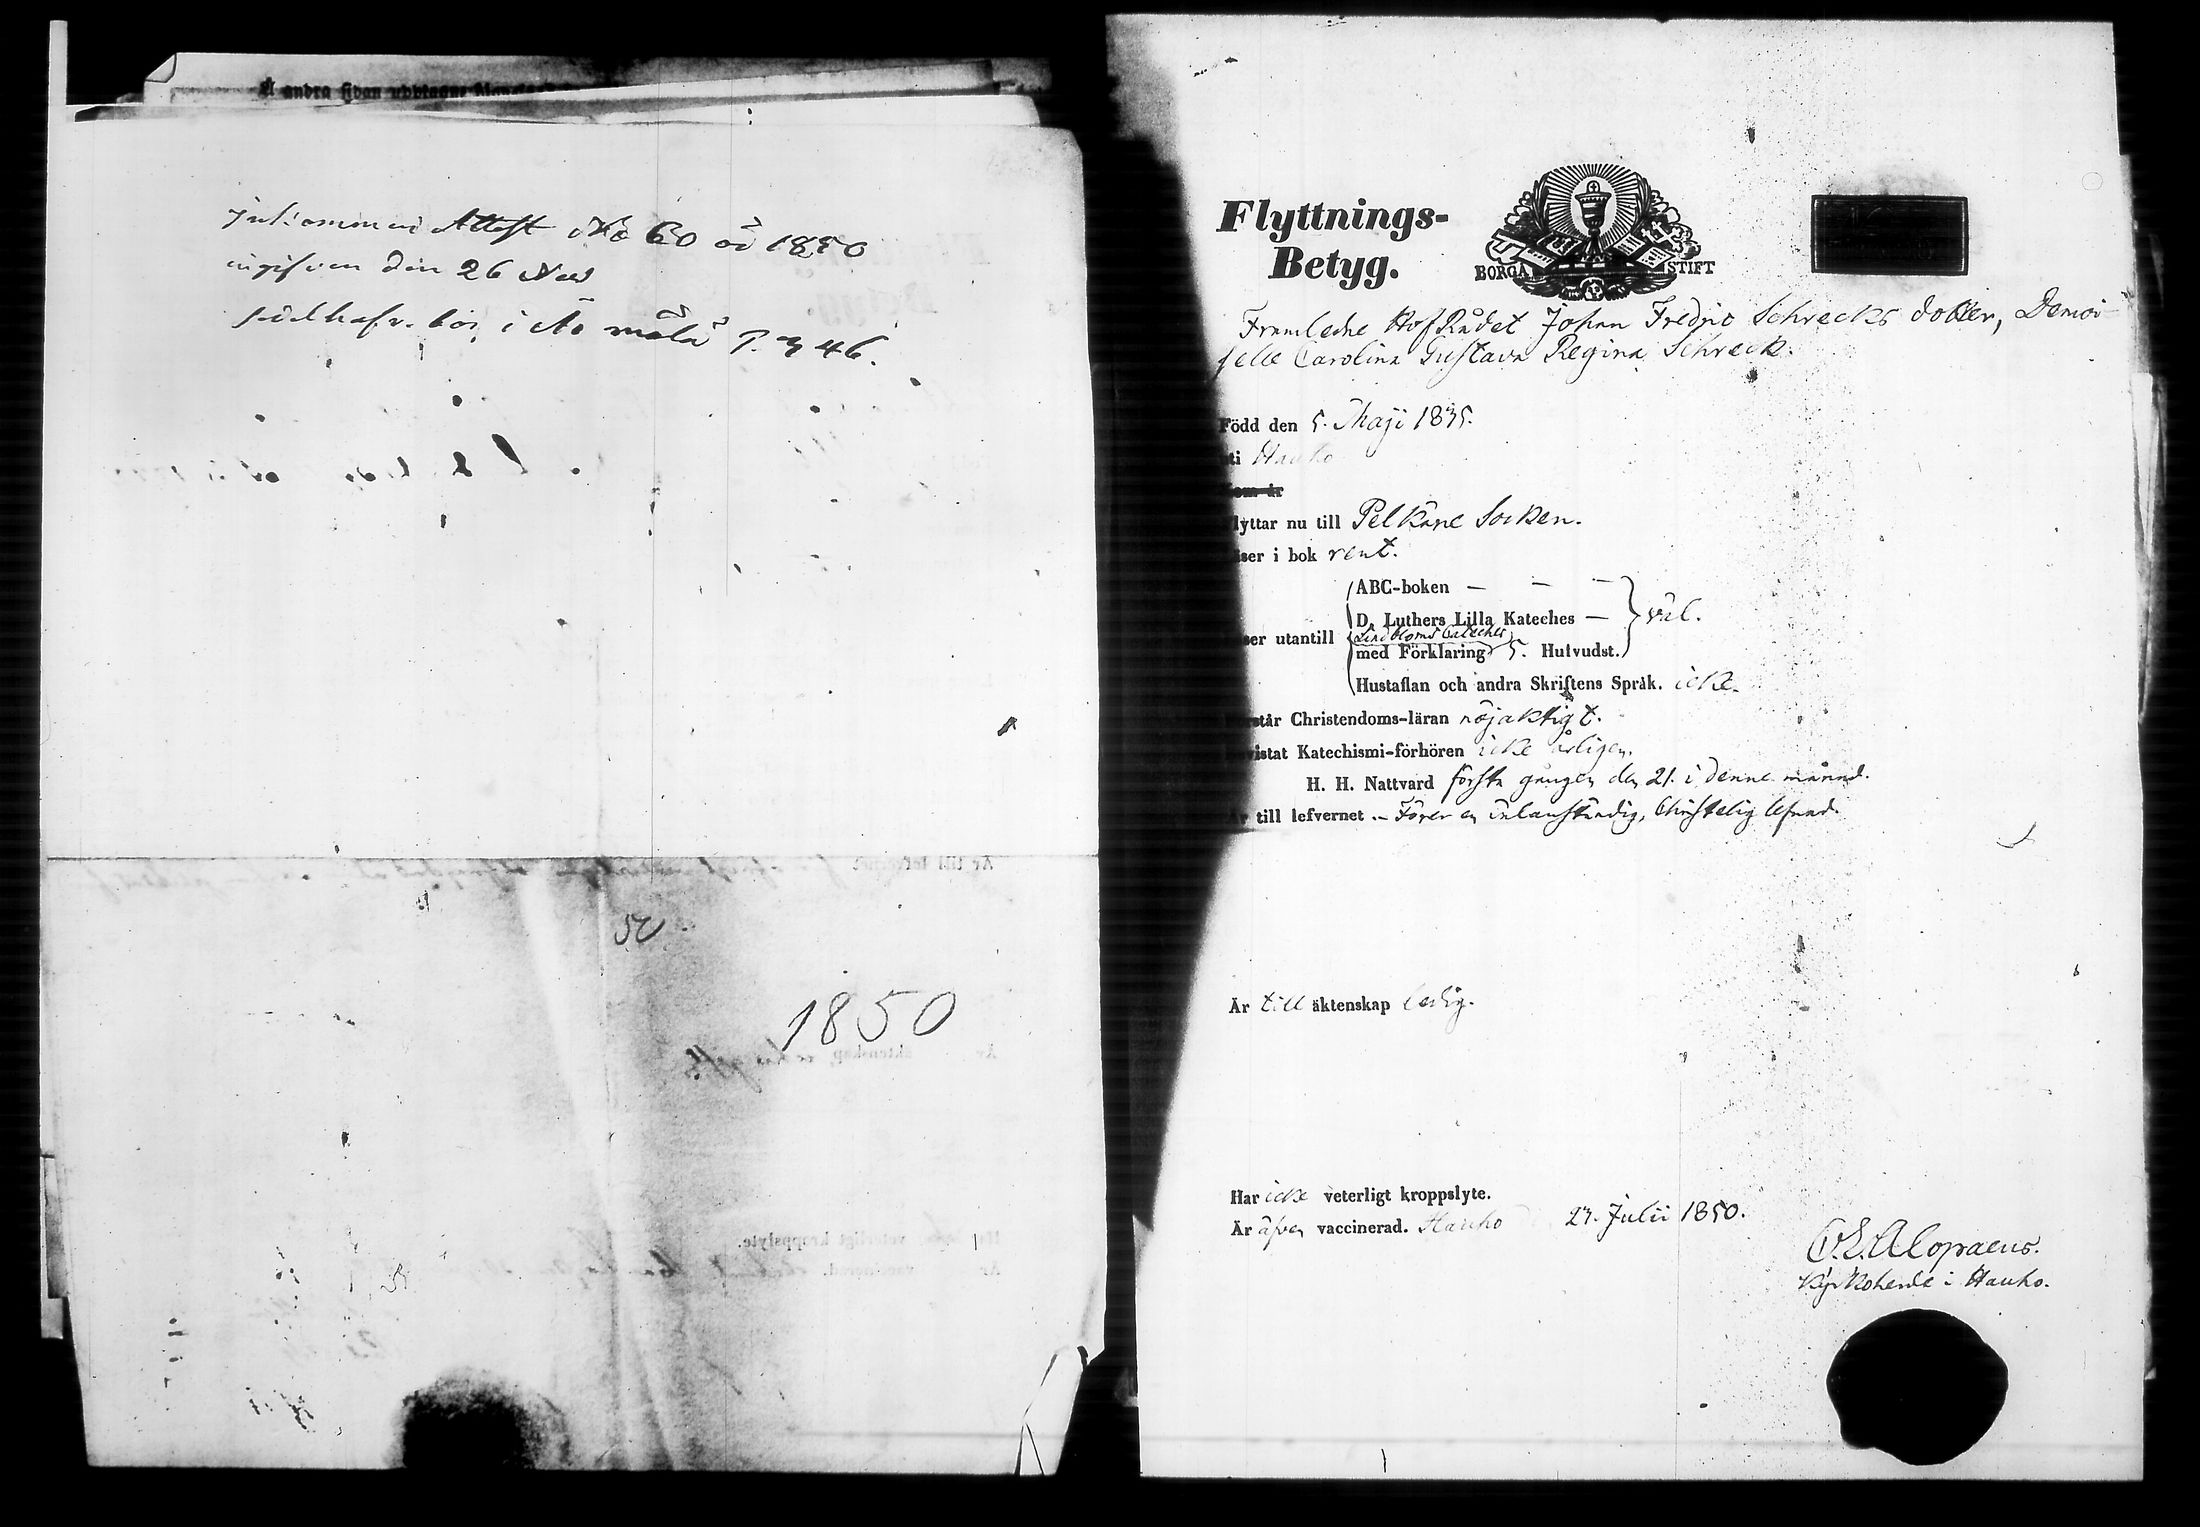 Attest No 60 år 1850
den 26 Nov
bor i
P. 346.
50
1850
Flyttnings-
Betyg.
BORGÅ STIFT
Framledne HofRådet Johan Fredric Schrecks dotter, Demoi-
selle Carolina Gustava Regina Schreck.
Född den 5. Maji 1835.
ti Hauho
lyttar nu till Pelkäne Socken.
ser i bok rent.
ABC-boken — — —
D. Luthers Lilla Kateches — väl.
ser utantill Lindbloms Cateches
med Förklaring 5. Hufvudst.
Hustaflan och andra Skriftens Språk. icke.
står Christendoms-läran nöjaktigt.
vistat Katechismi-förhören icke årligen.
H. H. Nattvard första gången den 21. i denne månad.
Är till lefvernet. – Förer en anständig, Christelig lefnad.
Är till äktenskap ledig.
Har icke veterligt kroppslyte.
Är äfven vaccinerad. Hauho 23. Julii 1850.
Alopaeus.
Kyrkoherde i Hauho.